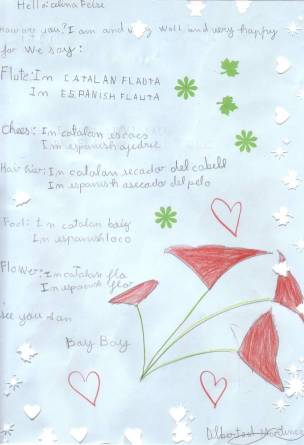 Hello: celina Felse
How are you? I am and very well and very happy
for We say:
Flute: In CATALAN FLAUTA
In ESPANISH FLAUTA
Chees: In catalan escacs
Im espanish ajedrez
Hair drier: In catalan secador del cabell
Im espanish asecador del pelo
Fool: In catalan boig
Im espanish loco
Flower: Im catalan flo
Im espanish flor
see you san
Bay Bay
Albert